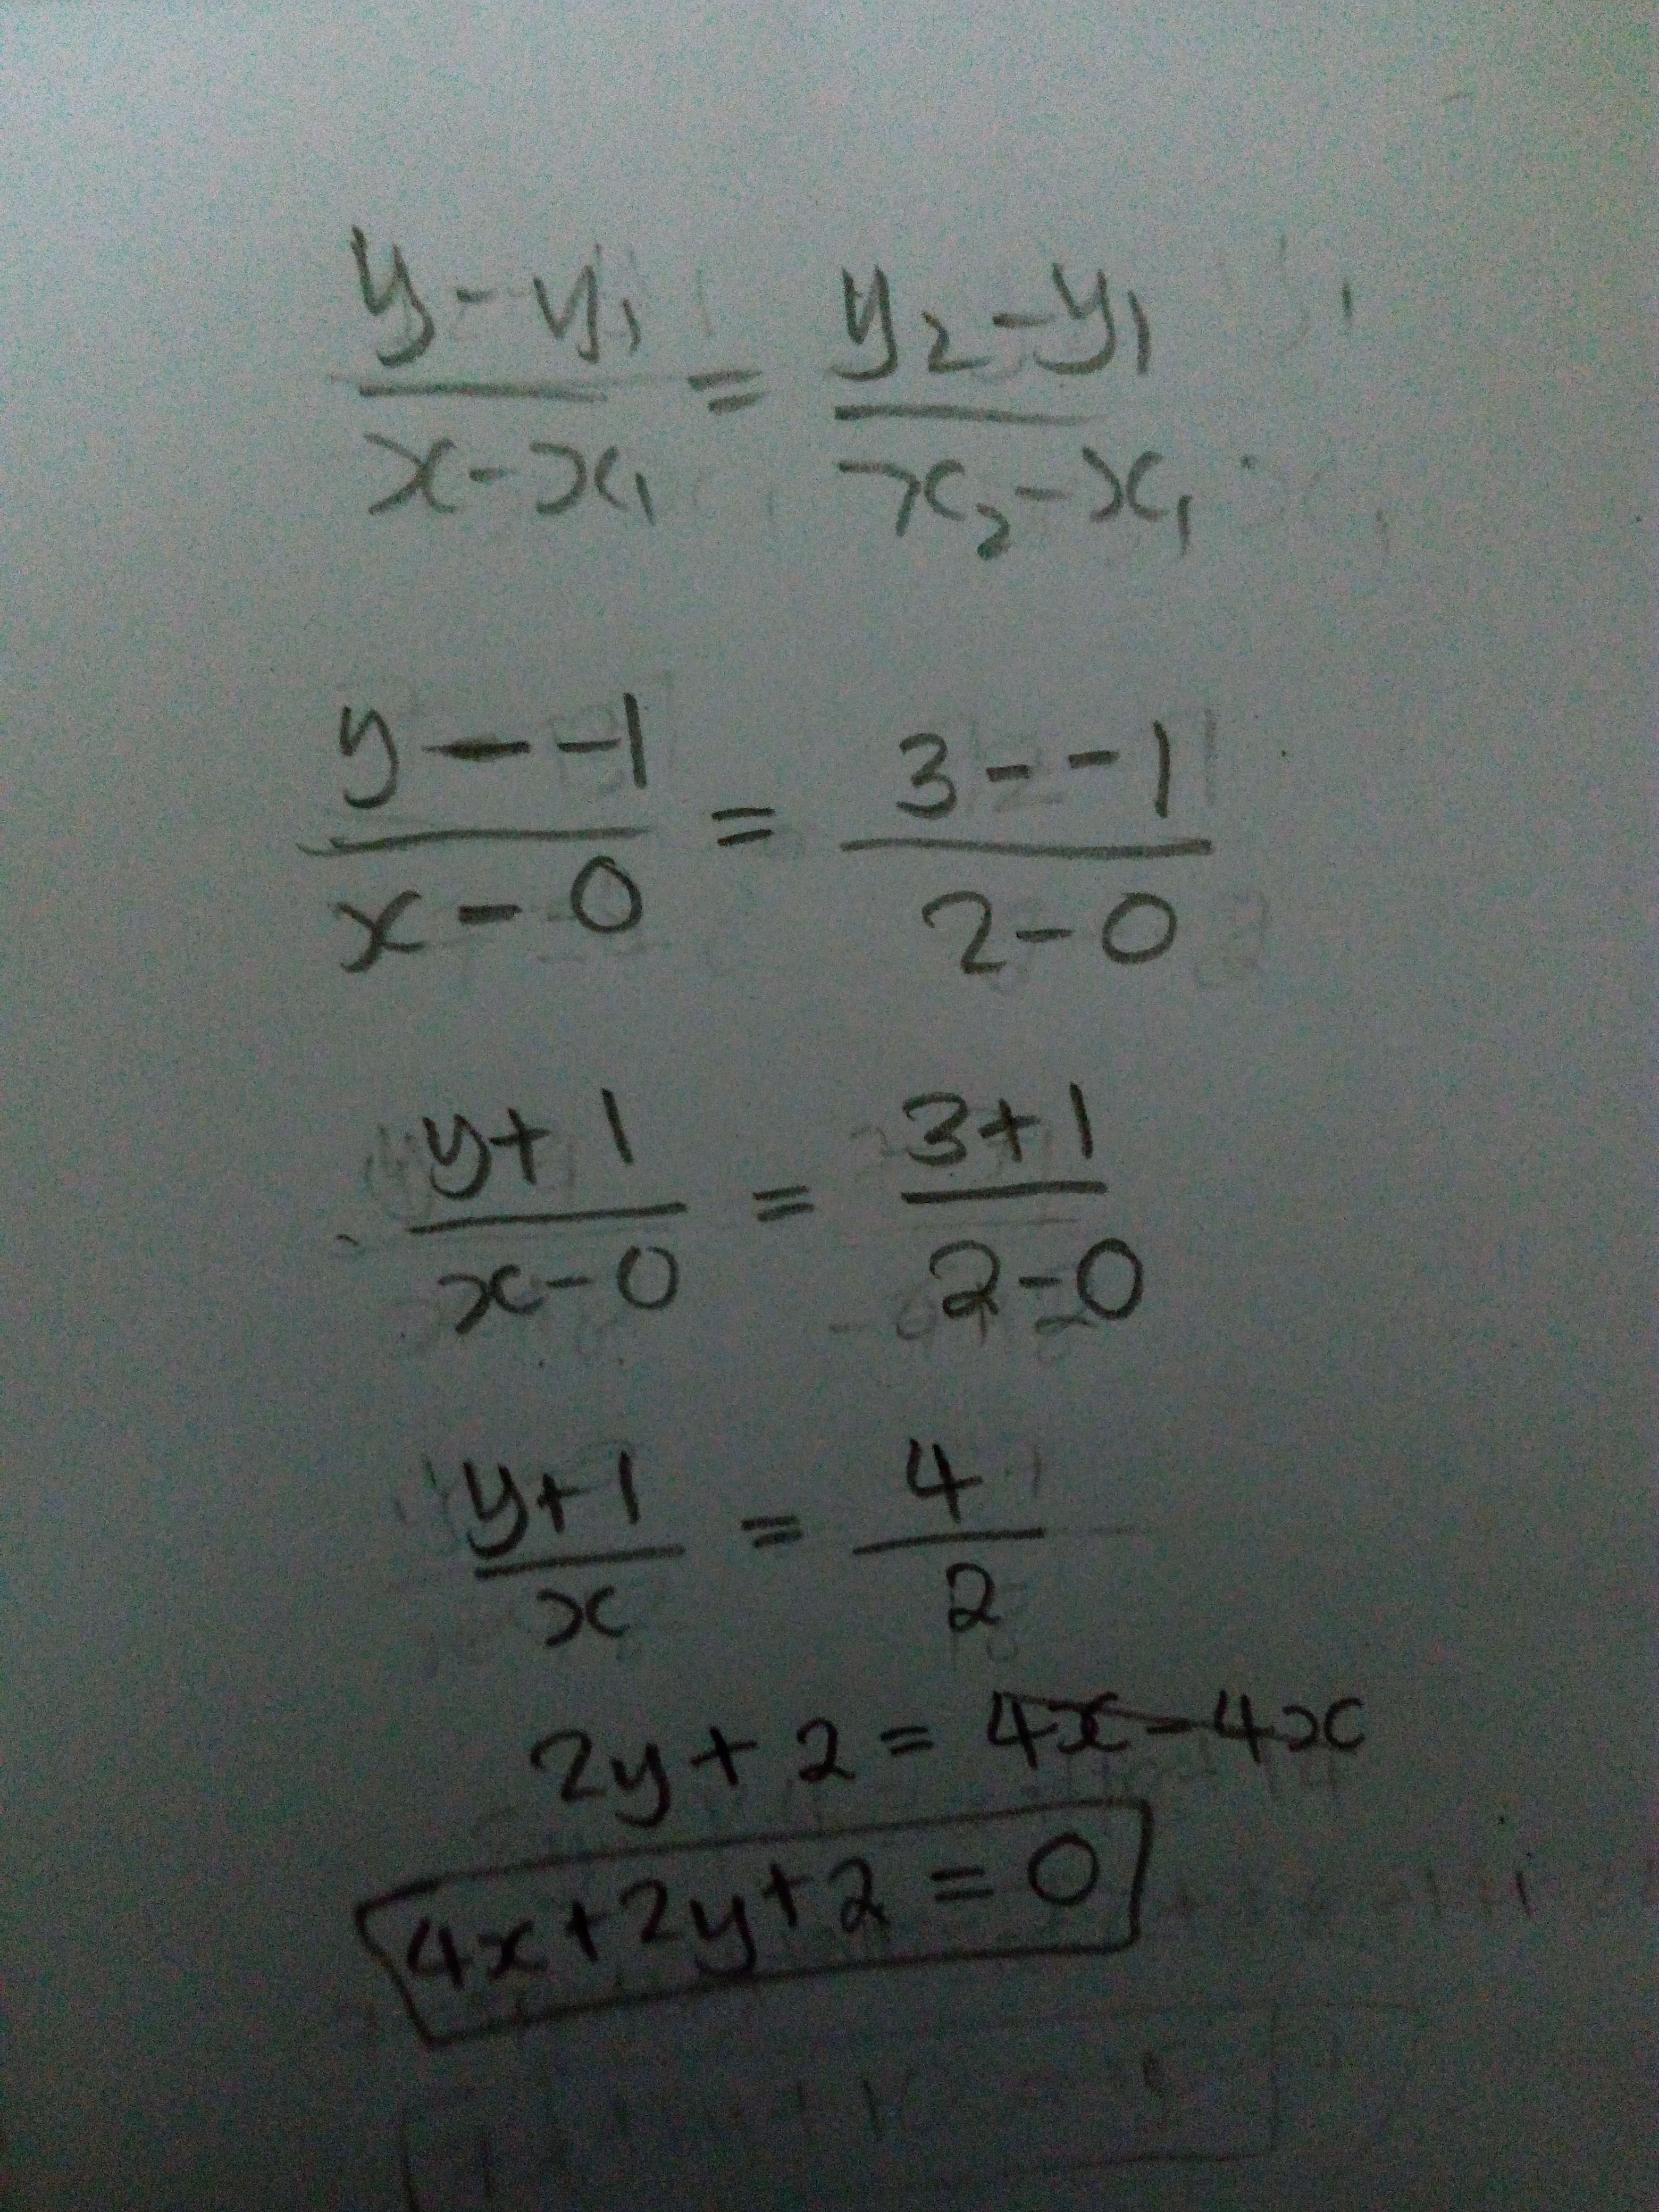 y - y₁ / x - x₁ = y₂ - y₁ / x₂ - x₁
y - -1 / x - 0 = 3 - -1 / 2 - 0
y + 1 / x - 0 = 3 + 1 / 2 - 0
y + 1 / x = 4 / 2
2y + 2 = 4x - 4x
4x + 2y + 2 = 0